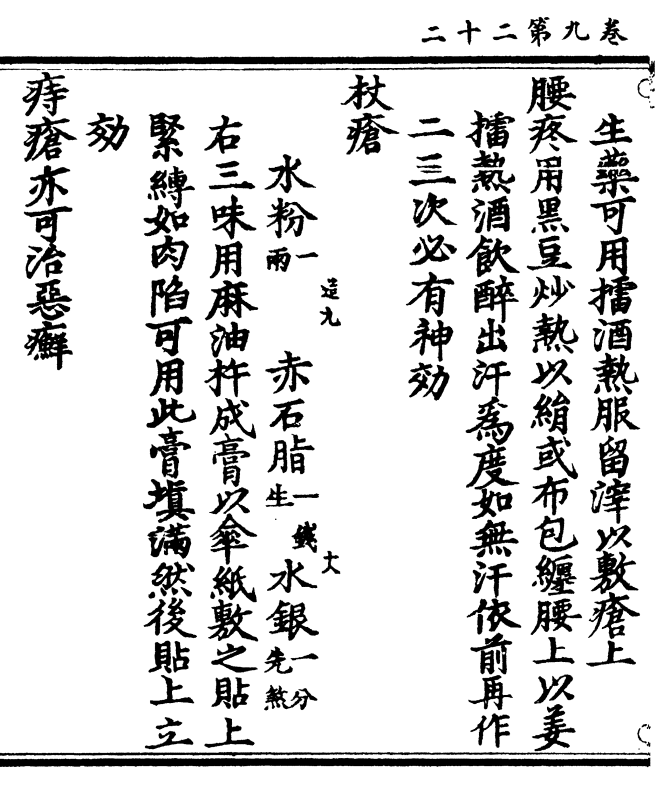 卷九第二十二
生藥可用擂酒熱服留滓以敷瘡上
腰疼用黑豆炒熱以絹或布包纏腰上以姜
擂熱酒飲醉出汗爲度如無汗依前再作
二三次必有神効
杖瘡
水粉一兩 赤石脂一錢生 水銀一分先煞
造九 十大
右三味用麻油杵成膏以傘紙敷之貼上
緊縛如肉陷可用此膏填滿然後貼上立
効
痔瘡亦可治惡癬